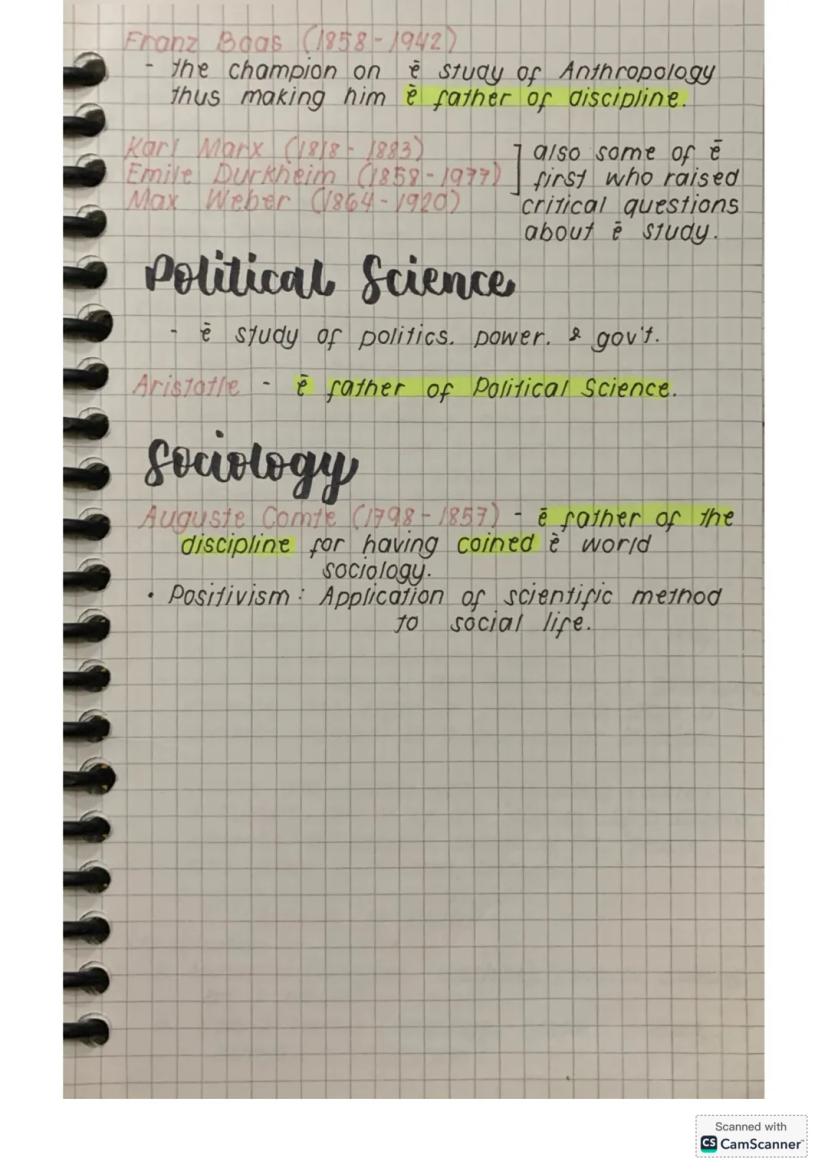 Franz Boas (1858-1942)
- the champion on ē study of Anthropology
thus making him ē father of discipline.
Karl Marx (1818-1883)
Emile Durkheim (1858-1977)
Max Weber (1864-1920)
also some of ē
first who raised
critical questions
about ē study.
Political Science
- ē study of politics. power. & gov't.
Aristotle - ē father of Political Science.
Sociology
Auguste Comte (1798-1857) - ē father of the
discipline for having coined ē world
sociology.
• Positivism: Application of scientific method
to social life.
Scanned with
CS CamScanner